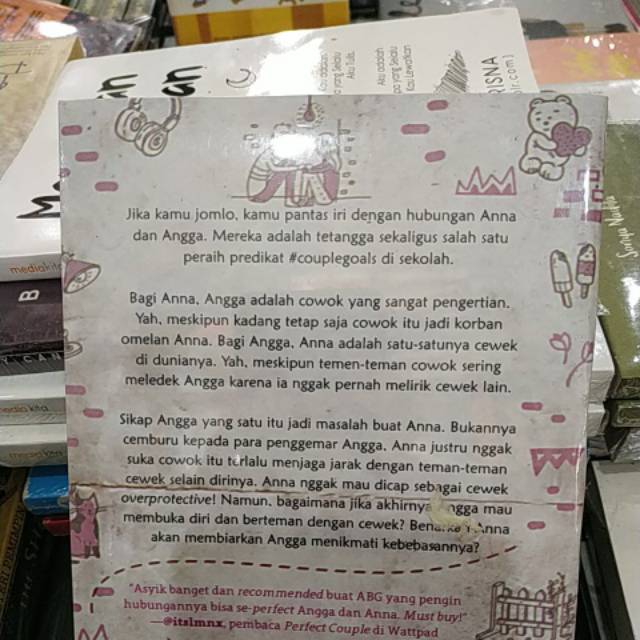 Aku adalah
RISNA
mediakita
Sonya Nubla
B
Jika kamu jomlo, kamu pantas iri dengan hubungan Anna
dan Angga. Mereka adalah tetangga sekaligus salah satu
peraih predikat #couplegoals di sekolah.
Bagi Anna, Angga adalah cowok yang sangat pengertian.
Yah, meskipun kadang tetap saja cowok itu jadi korban
omelan Anna. Bagi Angga, Anna adalah satu-satunya cewek
di dunianya. Yah, meskipun temen-teman cowok sering
meledek Angga karena ia nggak pernah melirik cewek lain.
Sikap Angga yang satu itu jadi masalah buat Anna. Bukannya
cemburu kepada para penggemar Angga. Anna justru nggak
suka cowok itu terlalu menjaga jarak dengan teman-teman
cewek selain dirinya. Anna nggak mau dicap sebagai cewek
overprotective! Namun, bagaimana jika akhirnya Angga mau
membuka diri dan berteman dengan cewek? Anna
akan membiarkan Angga menikmati kebebasannya?
"Asyik banget dan recommended buat ABG yang pengin
hubungannya bisa se-perfect Angga dan Anna. Must buy!"
—@itslmnx, pembaca Perfect Couple di Wattpad